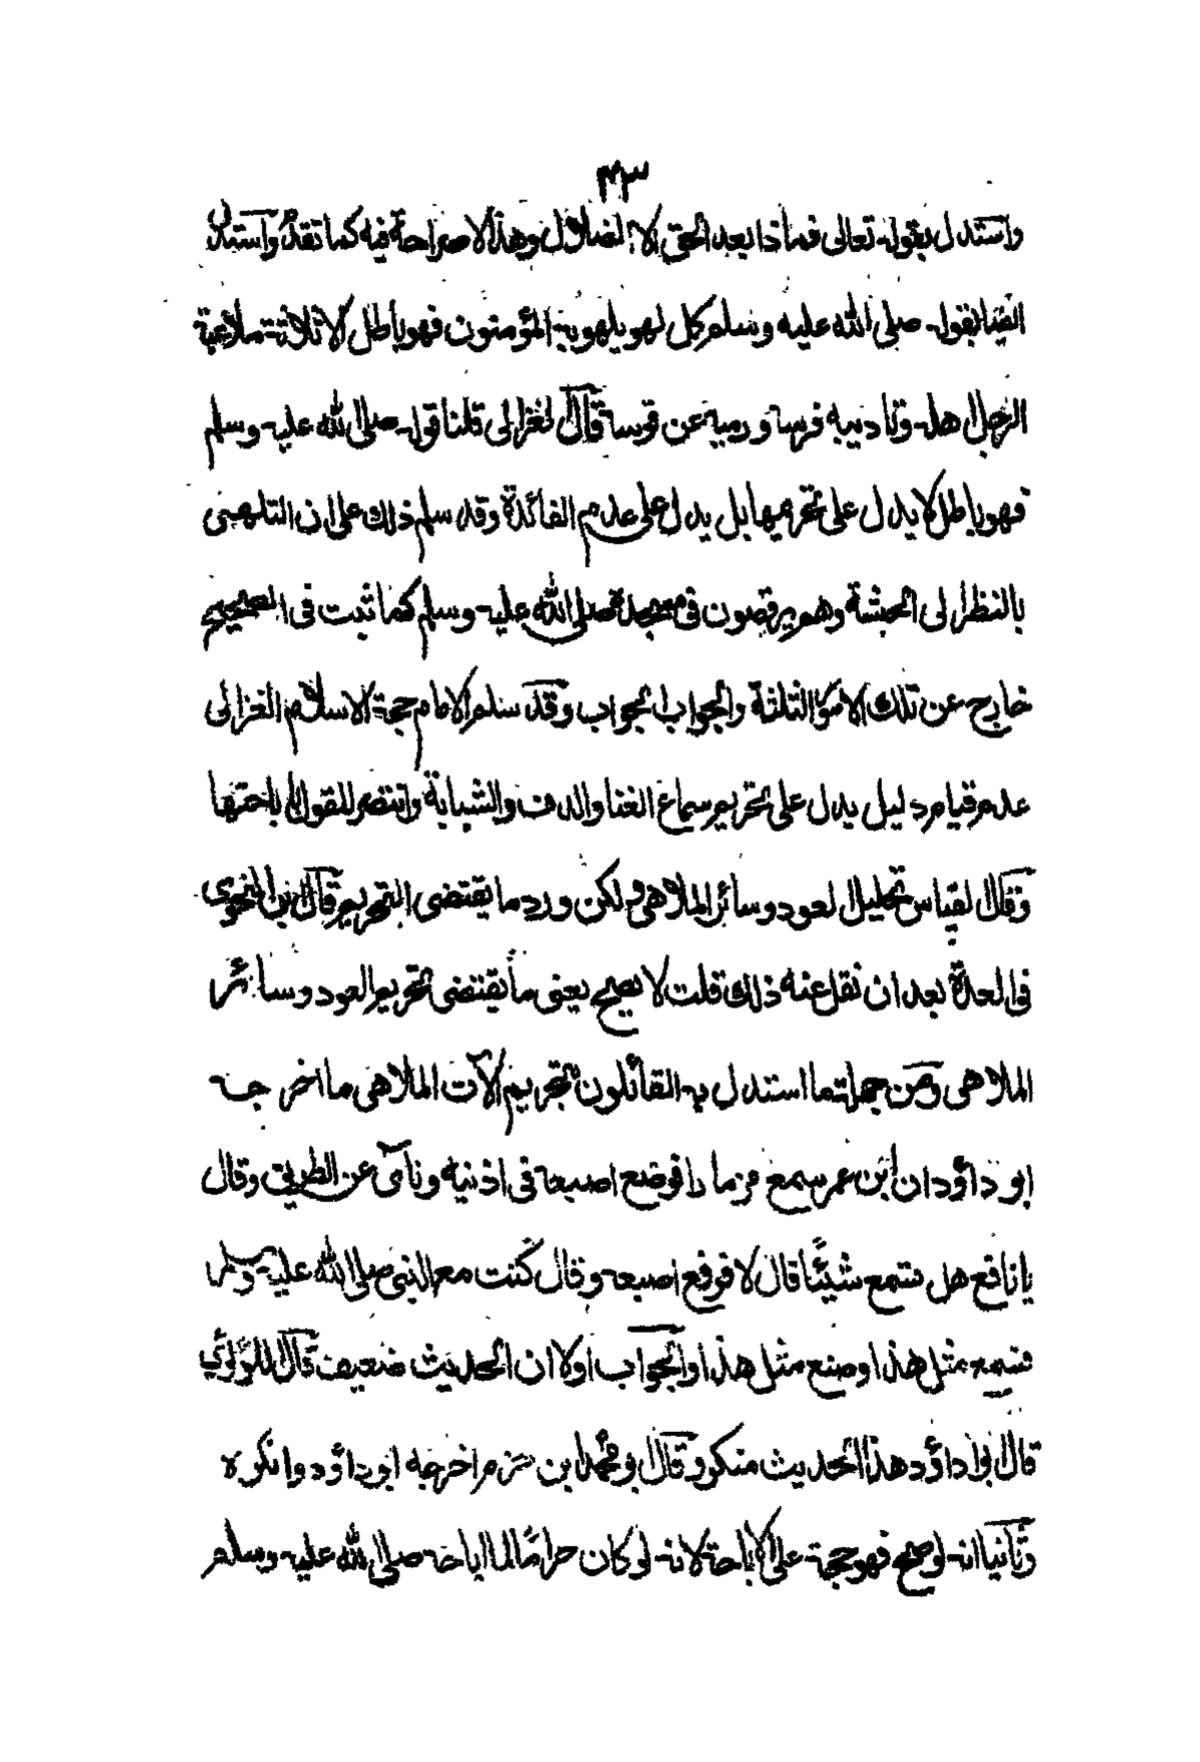 ٤٣
واستدل بقوله تعالى فماذا بعد الحق الا الضلال وهذا لا صراحة فيه كما تقدم واستدل
ايضا بقوله صلى الله عليه وسلم كل لهو يلهو به المؤمنون فهو باطل الا ثلاثة ملاعبة
الرجل اهله وتاديبه فرسه ورميه عن قوسه قال الغزالى قلنا قوله صلى الله عليه وسلم
فهو باطل لا يدل على تحريمها بل يدل على عدم الفائدة وقد سلم ذلك على ان التلهى
بالنظر الى الحبشة وهم يرقصون فى مسجده صلى الله عليه وسلم كما ثبت فى الصحيح
خارج عن تلك الامور الثلثة والجواب الجواب وقد سلم الامام حجة الاسلام الغزالى
عدم قيام دليل يدل على تحريم سماع الغنا والدف والشبابة وانتصر للقول باباحتها
وقال القياس تحليل العود وسائر الملاهى ولكن ورد ما يقتضى التحريم قال ابن النحوى
فى العدة بعد ان نقل عنه ذلك قلت لا يصح يعنى ما يقتضى تحريم العود وسائر
الملاهى ومن جملة ما استدل به القائلون بتحريم الآت الملاهى ما اخرجه
ابو داؤد ان ابن عمر سمع مزمارا فوضع اصبعه فى اذنيه ونآى عن الطريق وقال
يا نافع هل تسمع شيئًا قال لا فرفع اصبعه وقال كنت مع النبى صلى الله عليه وسلم
فسمع مثل هذا وصنع مثل هذا والجواب اولا ان الحديث ضعيف قال اللؤلؤي
قال ابو داؤد هذا الحديث منكر وقال ابو محمد ابن حزم اخرجه ابو داؤد وانكره
وثانيا انه لو صح فهو حجة على الاباحة لانه لو كان حرامًا لما اباحه صلى الله عليه وسلم